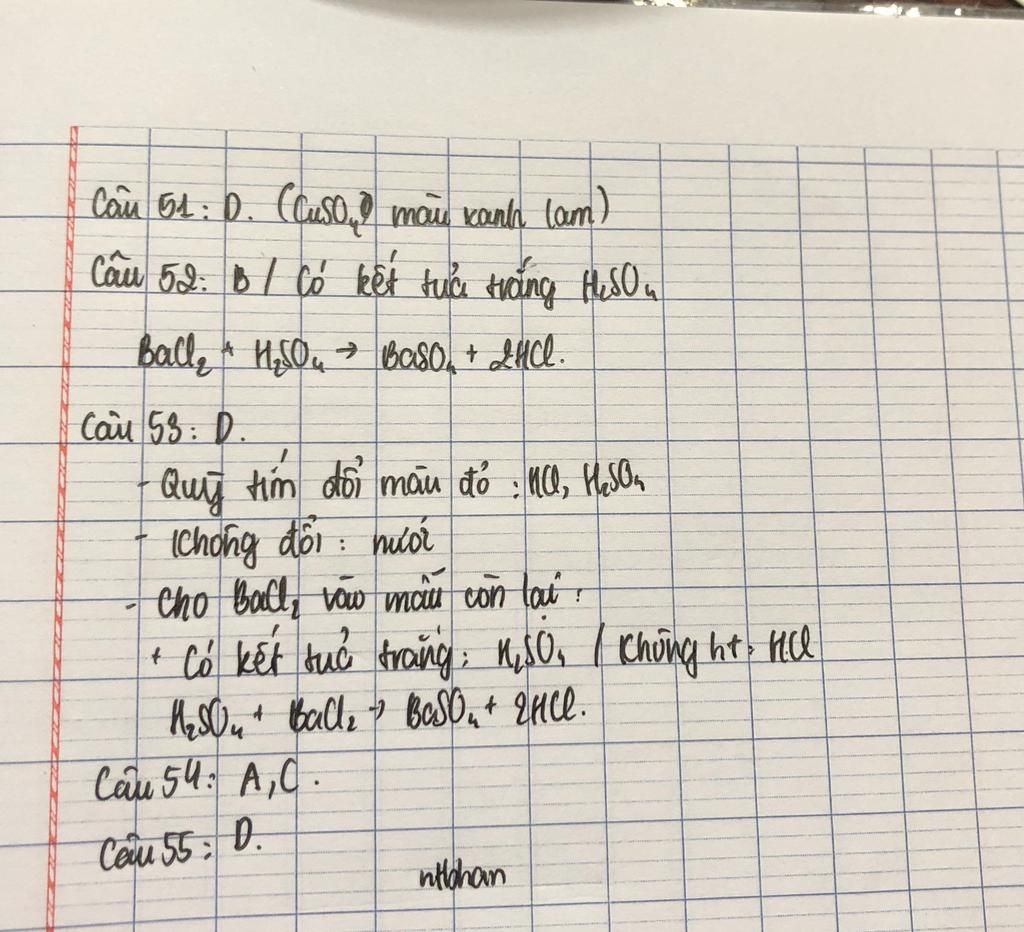 Câu 51: D. (CuSO₄ màu xanh lam)
Câu 52: B / Có kết tủa trắng H₂SO₄
BaCl₂ + H₂SO₄ → BaSO₄ + 2HCl.
Câu 53: D.
- Quỹ tím đổi màu đỏ : HCl, H₂SO₄
- Không đổi : nước
- Cho BaCl₂ vào mẫu còn lại :
+ Có kết tủa trắng : H₂SO₄ / Không ht : HCl
H₂SO₄ + BaCl₂ → BaSO₄ + 2HCl.
Câu 54: A, C.
Câu 55: D.